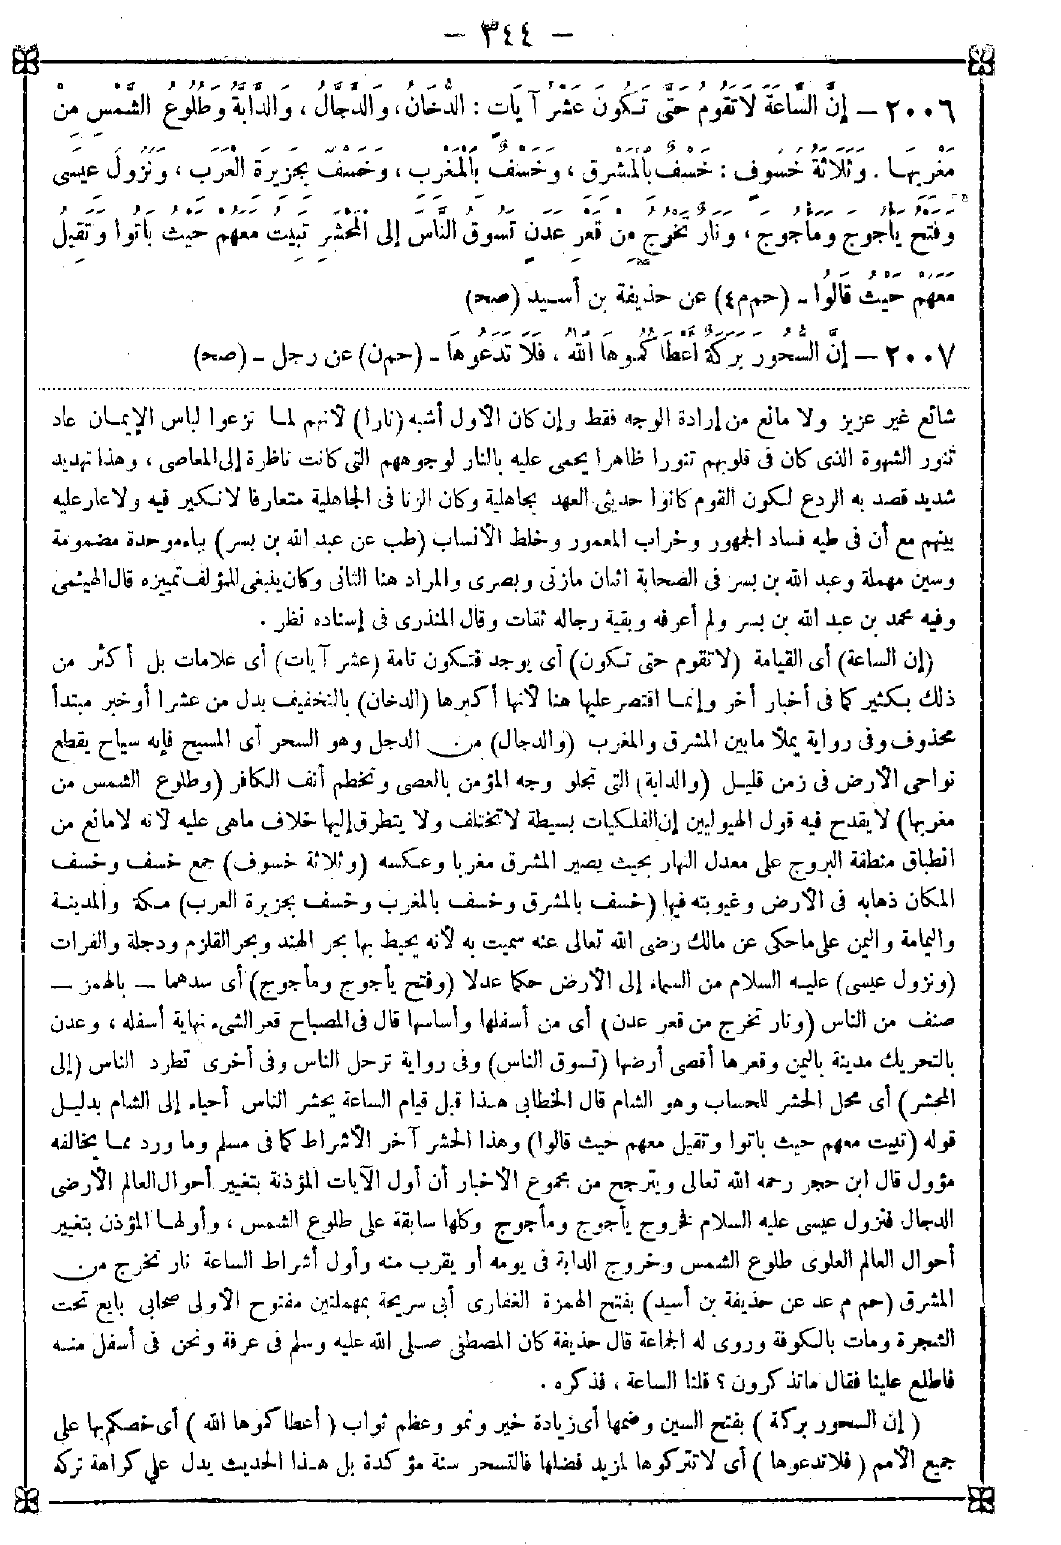 - ٣٤٤ -
٢٠٠٦ - إِنَّ السَّاعَةَ لَا تَقُومُ حَتَّى تَكُونَ عَشْرُ آيَاتٍ : الدُّخَانُ، وَالدَّجَّالُ ، وَالدَّابَّةُ وَطُلُوعُ الشَّمْسِ مِنْ
مَغْرِبِهَا . وَثَلَاثَةُ خُسُوفٍ : خَسْفٌ بِالْمَشْرِقِ ، وَخَسْفٌ بِالْمَغْرِبِ ، وَخَسْفٌ بِجَزِيرَةِ الْعَرَبِ ، وَنُزُولُ عِيسَى
وَفَتْحُ يَأْجُوجَ وَمَأْجُوجَ ، وَنَارٌ تَخْرُجُ مِنْ قَعْرِ عَدَنٍ تَسُوقُ النَّاسَ إِلَى الْمَحْشَرِ تَبِيتُ مَعَهُمْ حَيْثُ بَاتُوا وَتَقِيلُ
مَعَهُمْ حَيْثُ قَالُوا - (حم م ٤) عن حذيفة بن أسيد (صح)
٢٠٠٧ - إِنَّ السَّحُورَ بَرَكَةٌ أَعْطَاكُمُوهَا اللَّهُ ، فَلَا تَدَعُوهَا - (حم ن) عن رجل - (صح)
شائع غير عزيز ولا مانع من إرادة الوجه فقط وإن كان الأول أشبه (نارا) لأنهم لما نزعوا لباس الإيمان عاد
تنور الشهوة الذى كان فى قلوبهم تنورا ظاهرا يحمى عليه بالنار لوجوههم التى كانت ناظرة إلى المعاصى ، وهذا تهديد
شديد قصد به الردع لكون القوم كانوا حديثى العهد بجاهلية وكان الزنا فى الجاهلية متعارفا لا نكير فيه ولا عار عليه
بينهم مع أن فى طيه فساد الجمهور وخراب المعمور وخلط الأنساب (طب عن عبد الله بن بسر) بباء موحدة مضمومة
وسين مهملة وعبد الله بن بسر فى الصحابة اثنان مازنى وبصرى والمراد هنا الثانى وكان ينبغى للمؤلف تمييزه قال الهيثمى
وفيه محمد بن عبد الله بن بسر ولم أعرفه وبقية رجاله ثقات وقال المنذرى فى إسناده نظر .
(إن الساعة) أى القيامة (لا تقوم حتى تكون) أى يوجد فتكون تامة (عشر آيات) أى علامات بل أكثر من
ذلك بكثير كما فى أخبار أخر وإنما اقتصر عليها هنا لأنها أكبرها (الدخان) بالتخفيف بدل من عشرا أو خبر مبتدأ
محذوف وفى رواية يملأ ما بين المشرق والمغرب (والدجال) من الدجل وهو السحر أى المسيح فإنه سياح يقطع
نواحى الأرض فى زمن قليل (والدابة) التى تجلو وجه المؤمن بالعصى وتخطم أنف الكافر (وطلوع الشمس من
مغربها) لا يقدح فيه قول الهيوليين إن الفلكيات بسيطة لا تختلف ولا يتطرق إليها خلاف ماهى عليه لأنه لا مانع من
انطباق منطقة البروج على معدل النهار بحيث يصير المشرق مغربا وعكسه (وثلاثة خسوف) جمع خسف وخسف
المكان ذهابه فى الأرض وغيوبته فيها (خسف بالمشرق وخسف بالمغرب وخسف بجزيرة العرب) مكة والمدينة
واليمامة واليمن على ما حكى عن مالك رضى الله تعالى عنه سميت به لأنه يحيط بها بحر الهند وبحر القلزم ودجلة والفرات
(ونزول عيسى) عليه السلام من السماء إلى الأرض حكما عدلا (وفتح يأجوج ومأجوج) أى سدهما - بالهمز -
صنف من الناس (ونار تخرج من قعر عدن) أى من أسفلها وأساسها قال فى المصباح قعر الشىء نهاية أسفله ، وعدن
بالتحريك مدينة باليمن وقعرها أقصى أرضها (تسوق الناس) وفى رواية ترحل الناس وفى أخرى تطرد الناس (إلى
المحشر) أى محل الحشر للحساب وهو الشام قال الخطابى هذا قبل قيام الساعة يحشر الناس أحياء إلى الشام بدليل
قوله (تبيت معهم حيث باتوا وتقيل معهم حيث قالوا) وهذا الحشر آخر الأشراط كما فى مسلم وما ورد مما يخالفه
مؤول قال ابن حجر رحمه الله تعالى ويترجح من مجموع الاخبار أن أول الآيات المؤذنة بتغيير أحوال العالم الأرضى
الدجال فنزول عيسى عليه السلام فخروج يأجوج ومأجوج وكلها سابقة على طلوع الشمس ، وأولها المؤذن بتغيير
أحوال العالم العلوى طلوع الشمس وخروج الدابة فى يومه أو يقرب منه وأول أشراط الساعة نار تخرج من
المشرق (حم م عد عن حذيفة بن أسيد) بفتح الهمزة الغفارى أبى سريحة بمهملتين مفتوح الأولى صحابى بايع تحت
الشجرة ومات بالكوفة وروى له الجماعة قال حذيفة كان المصطفى صلى الله عليه وسلم فى غرفة ونحن فى أسفل منه
فاطلع علينا فقال ما تذكرون ؟ قلنا الساعة ، فذكره .
( إن السحور بركة ) بفتح السين وضمها أى زيادة خير ونمو وعظم ثواب ( أعطاكموها الله ) أى خصكم بها على
جميع الأمم ( فلا تدعوها ) أى لا تتركوها لمزيد فضلها فالتسحر سنة مؤكدة بل هذا الحديث يدل على كراهة تركه